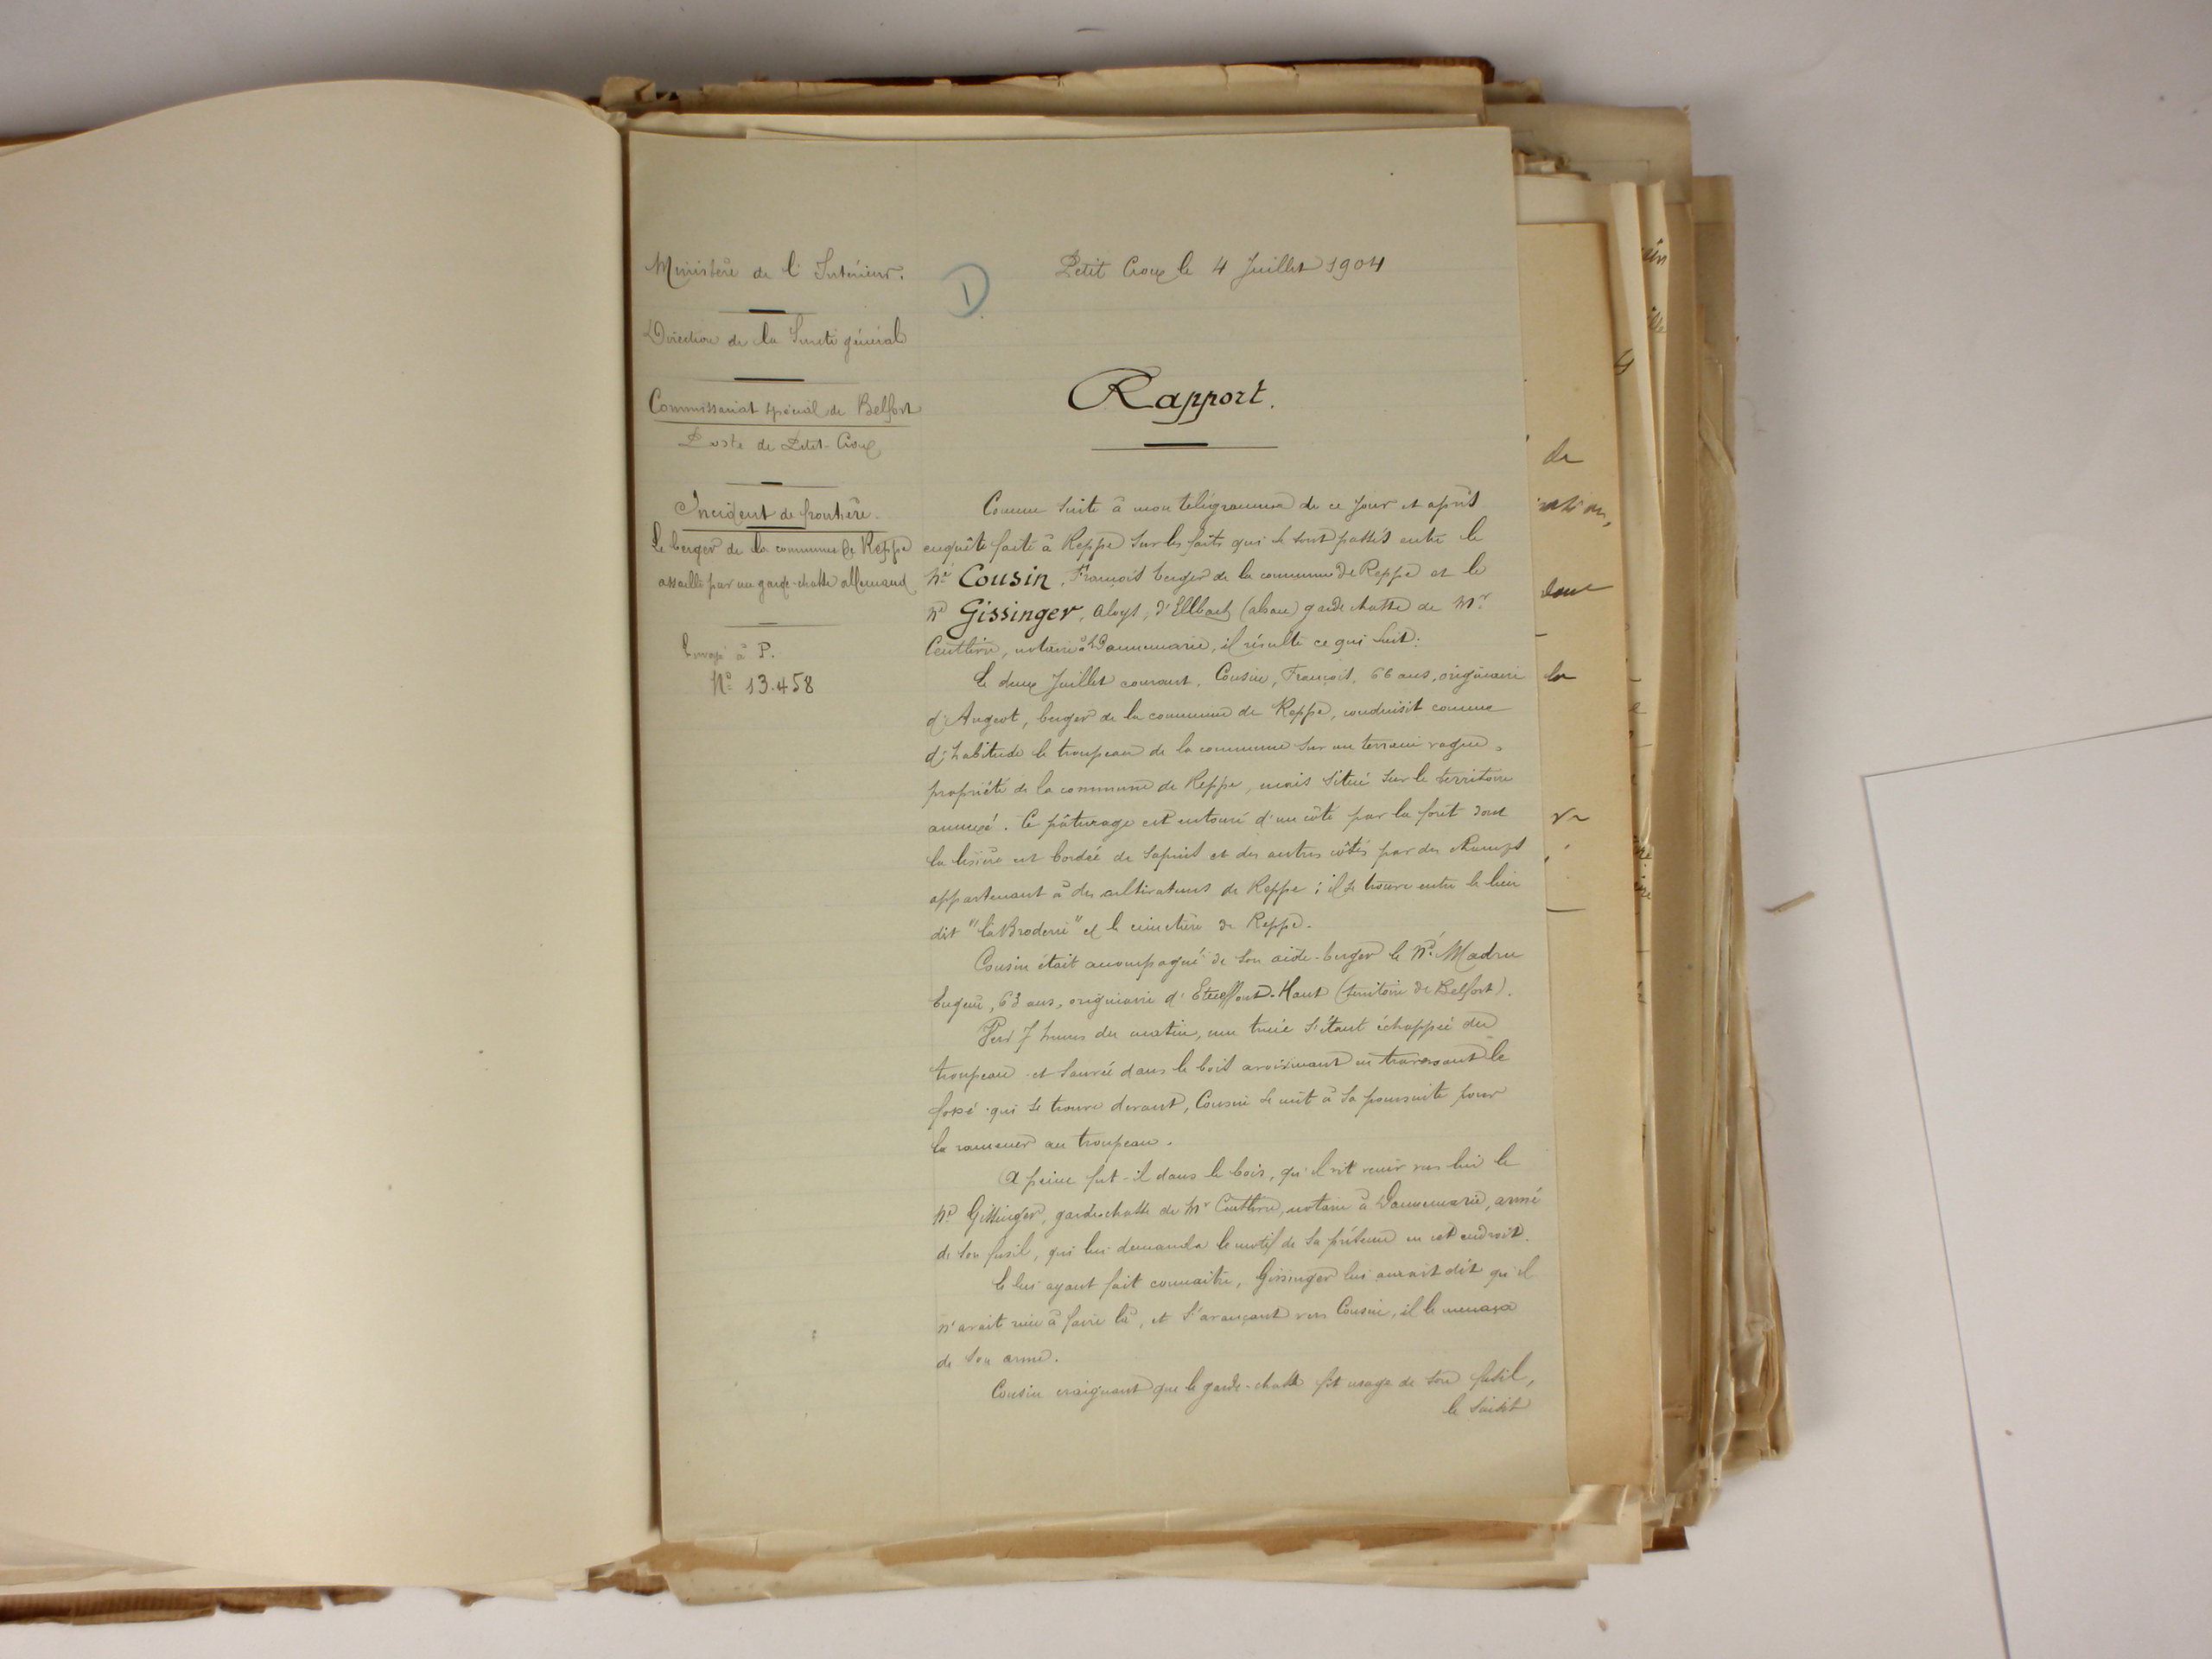 Ministère de l'Intérieur.
Direction de la Sureté générale
Commissariat spécial de Belfort
Poste de Petit-Croix
Incident de frontière.
Le berger de la commune de Reppe
assailli par un garde-chasse allemand
Envoyé à P.
N° 13.458
1
Petit Croix le 4 Juillet 1904
Rapport.
Comme suite à mon télégramme de ce jour et après
enquête faite à Reppe sur les faits qui se sont passés entre le
né Cousin, François berger de la commune de Reppe et le
né Gissinger, Aloys, d'Ellbach (alsace) garde chasse de Mr
notaire à Dannemarie, il résulte ce qui suit:
Le deux Juillet courant, Cousin, François, 66 ans, originaire
d'Angeot, berger de la commune de Reppe, conduisit comme
d'habitude le troupeau de la commune sur un terrain vague,
propriété de la commune de Reppe, mais situé sur le territoire
annexé. Ce pâturage est entouré d'un côté par la forêt dont
la lisière est bordée de sapins et des autres côtés par des champs
appartenant à des cultivateurs de Reppe; il se trouve entre le lieu
dit "la Broderie" et le cimetière de Reppe.
Cousin était accompagné de son aide-berger le né Madru
Eugène, 63 ans, originaire d'Etueffont-Haut (territoire de Belfort).
Vers 7 heures du matin, une truie s'étant échappée du
troupeau et sauvée dans le bois avoisinant en traversant le
fossé qui se trouve devant, Cousin se mit à sa poursuite pour
la ramener au troupeau.
A peine fut-il dans le bois, qu'il vit venir vers lui le
né Gissinger, garde-chasse de Mr notaire à Dannemarie, armé
de son fusil, qui lui demanda le motif de sa présence en cet endroit.
Le lui ayant fait connaitre, Gissinger lui aurait dit qu'il
n'avait rien à faire là, et s'avançant vers Cousin, il le menaça
de son arme.
Cousin craignant que le garde-chasse fit usage de son fusil,
le saisit
de
dont
la